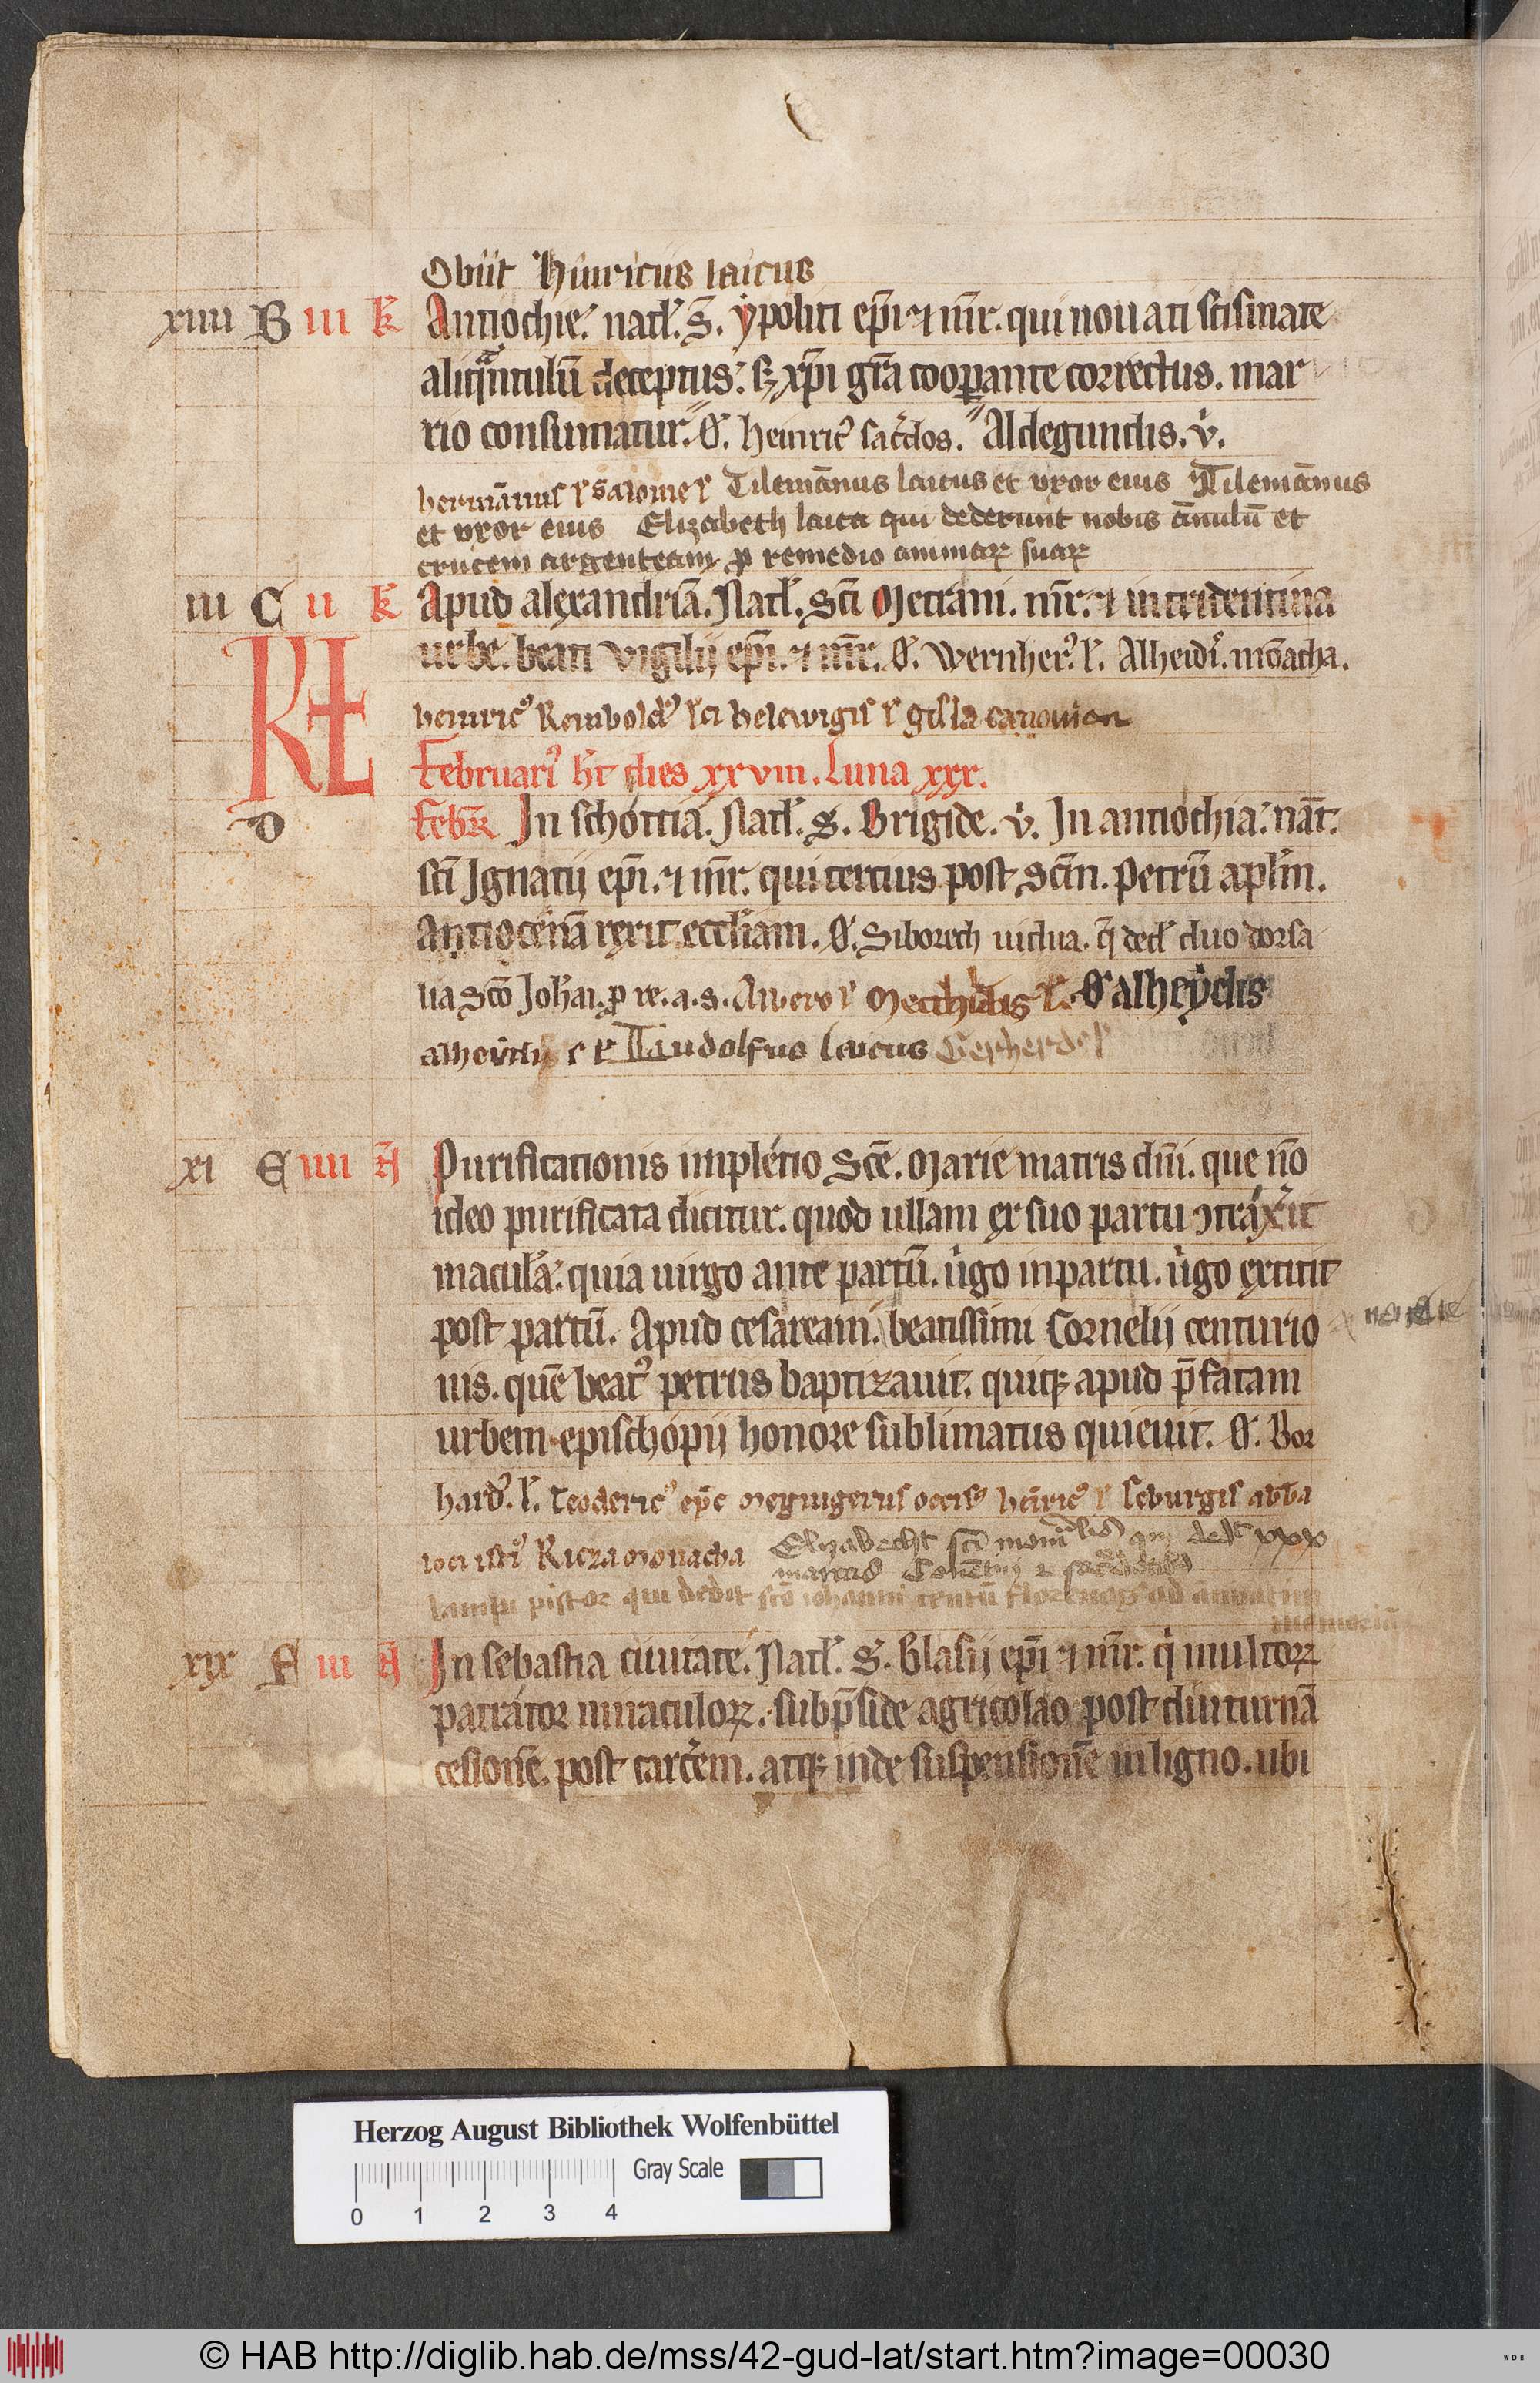 Obiit Hinricus laicus
xiiii B iii k̄ Antiochie. natl̕. S̄. ẏpoliti ep̄i ⁊ m̄r. qui nouati scismate
aliq̄ntulū deceptus: sꝫ xp̄i gr̄a cooꝑante correctus. mar
rio consumatur. O᷎. Heinric᷒ sac̄dos. Aldegundis. v̇.
hermānus l᷎ Salome l᷎ Tilemānus laicus et vxor eius Tilemānus
et vxor eius Elizabeth laica qui dederunt nobis ānulū et
crucem argenteam ꝓ remedio animaꝝ suaꝝ
iii C ii k̄ Apud alexandriā. Natl̕. Sc̄i Metrani. m̄r. ⁊ in tridentina
urbe. beati vigilij ep̄i. ⁊ m̄r. O᷎. Wernher᷒. l᷎. Alheid᷎. mōacha.
heinric᷒ Reinbold᷒ l᷎ci helewigis l᷎ gisla canonica
KL Februari᷒ h̄t dies xxviii. Luna xxx.
D febr̄ In schottia. Natl̕. S. Brigide. v̇. In antiochia. nāt.
sc̄i Ignatij ep̄i. ⁊ m̄r. qui tercius post Sc̄m. Petrū apl̄m.
Antiocenā rexit eccl̄iam. O᷎. Siborech uidua. q̄ ded̄ duo dorsa
lia Sc̄o Joh̄ai. ꝓ re. a. s. Auero l᷎ Mecthidis l᷎. O᷎ alheẏdis
alheẏdis l᷎ Ludolfus laicus Gerherd᷒ l᷎
xi E iiii N̄ Purificationis impletio Sc̄e. Marie matris dn̄i. que nō
ideo purificata dicitur. quod ullam ex suo partu ꝯtrax̄it
maculā. quia uirgo ante partū. u̇go in partu. u̇go extitit
post partū. Apud cesaream. beatissimi Cornelij centurio
nis. quē beat᷒ petrus baptizauit. quiqꝫ apud p̄fatam
urbem epischopij honore sublimatus quieuit. O᷎. Bor
hard᷒. l᷎. Teoderic᷒ ep̄c Meynigerus occis᷒ heīric᷒ l᷎ Seburgis abb̄a
loci isti᷒ Ricza monacha Elizabecht sc̄i qui ded̄t xxx
marcas Conētui ⁊ sac̄dotibus
pistor qui dedit sc̄o iohanni centū florenos ad
memoriā
xix F iii N̄ In sebastia ciuitate. Natl̕. S. Blasij ep̄i ⁊ m̄r. q̇ multoꝝ
patrator miraculoꝝ. sub p̄side agricolao post diuturnā
cesionē. post carc̄em. atqꝫ inde suspensionē in ligno. ubi
Herzog August Bibliothek Wolfenbüttel
Gray Scale
0 1 2 3 4
© HAB http://diglib.hab.de/mss/42-gud-lat/start.htm?image=00030
WDB